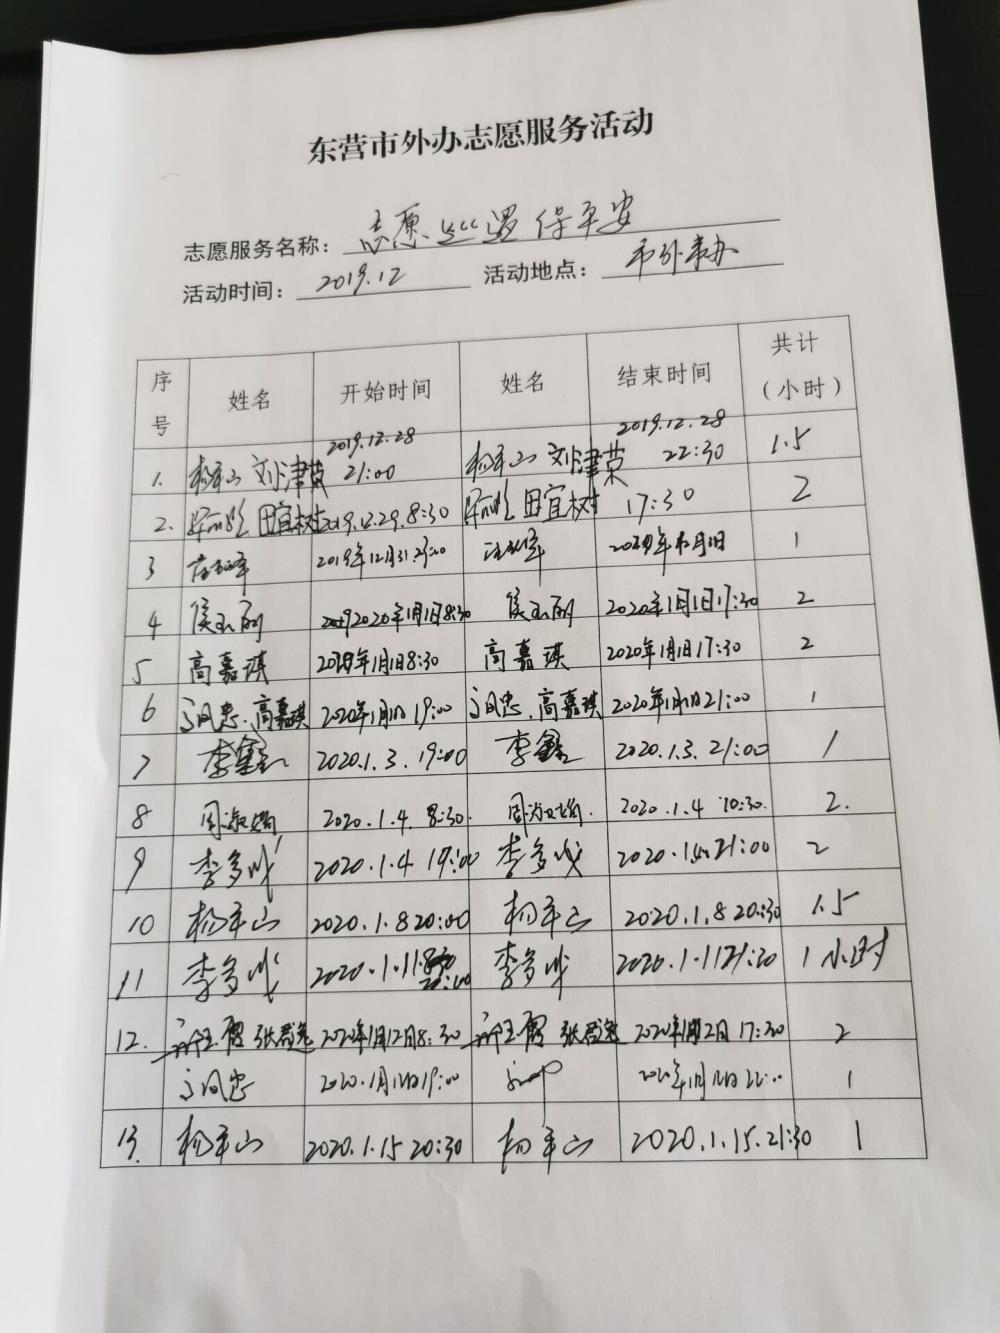 东营市外办志愿服务活动
志愿服务名称：志愿 巡逻 保平安
活动时间：2019.12 活动地点：市外事办
序号 姓名 开始时间 姓名 结束时间 共计（小时）
1. 杨军山 刘津荣 2019.12.28 21:00 杨军山 刘津荣 2019.12.28 22:30 1.5
2. 田宜树 2019.12.29.8:30 田宜树 17:30 2
3 2019年12月31 1
4 侯玉丽 2020年1月1日8:30 侯玉丽 2020年1月1日17:30 2
5 高嘉琪 1月1日8:30 高嘉琪 2020年1月1日17:30 2
6 高嘉琪 2020年1月1日 19:00 高嘉琪 2020年1月1日21:00 1
7 李鑫 2020.1.3. 19:00 李鑫 2020.1.3. 21:00 1
8 2020.1.4. 8:30. 2020.1.4 10:30. 2.
9 李多 2020.1.4 19:00 李多 2020.1.4 21:00 2
10 杨军山 2020.1.8 20:00 杨军山 2020.1.8 20:30 1.5
11 李多 2020.1.11 20:00 李多 2020.1.11 21:30 1小时
12. 张 2020年1月12日8:30 张 2020年1月12日 17:30 2
2020.1月 19:00 1
13. 杨军山 2020.1.15 20:30 杨军山 2020.1.15.21:30 1